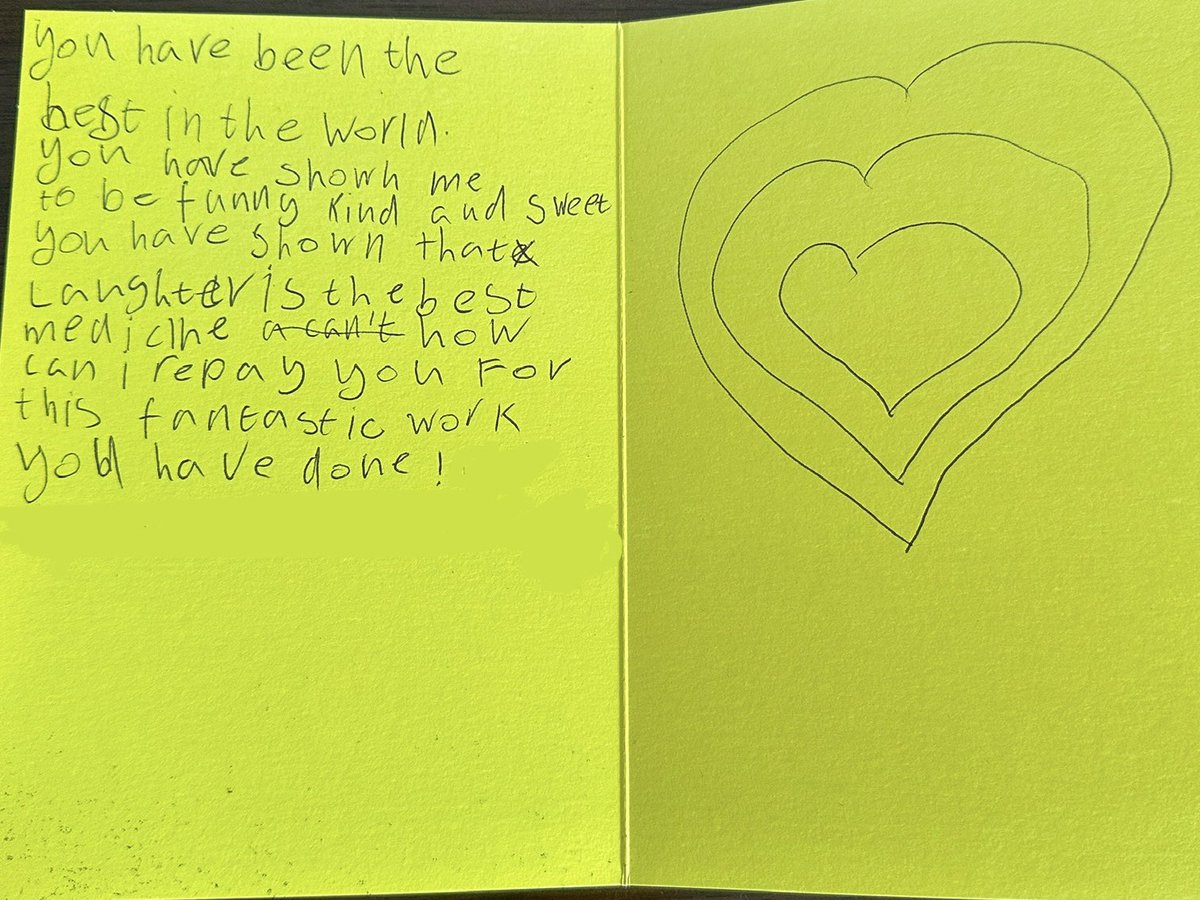 you have been the
best in the world.
you have shown me
to be funny kind and sweet
you have shown that
Laughter is the best
medicine a can't how
can i repay you For
this fantastic work
you have done!